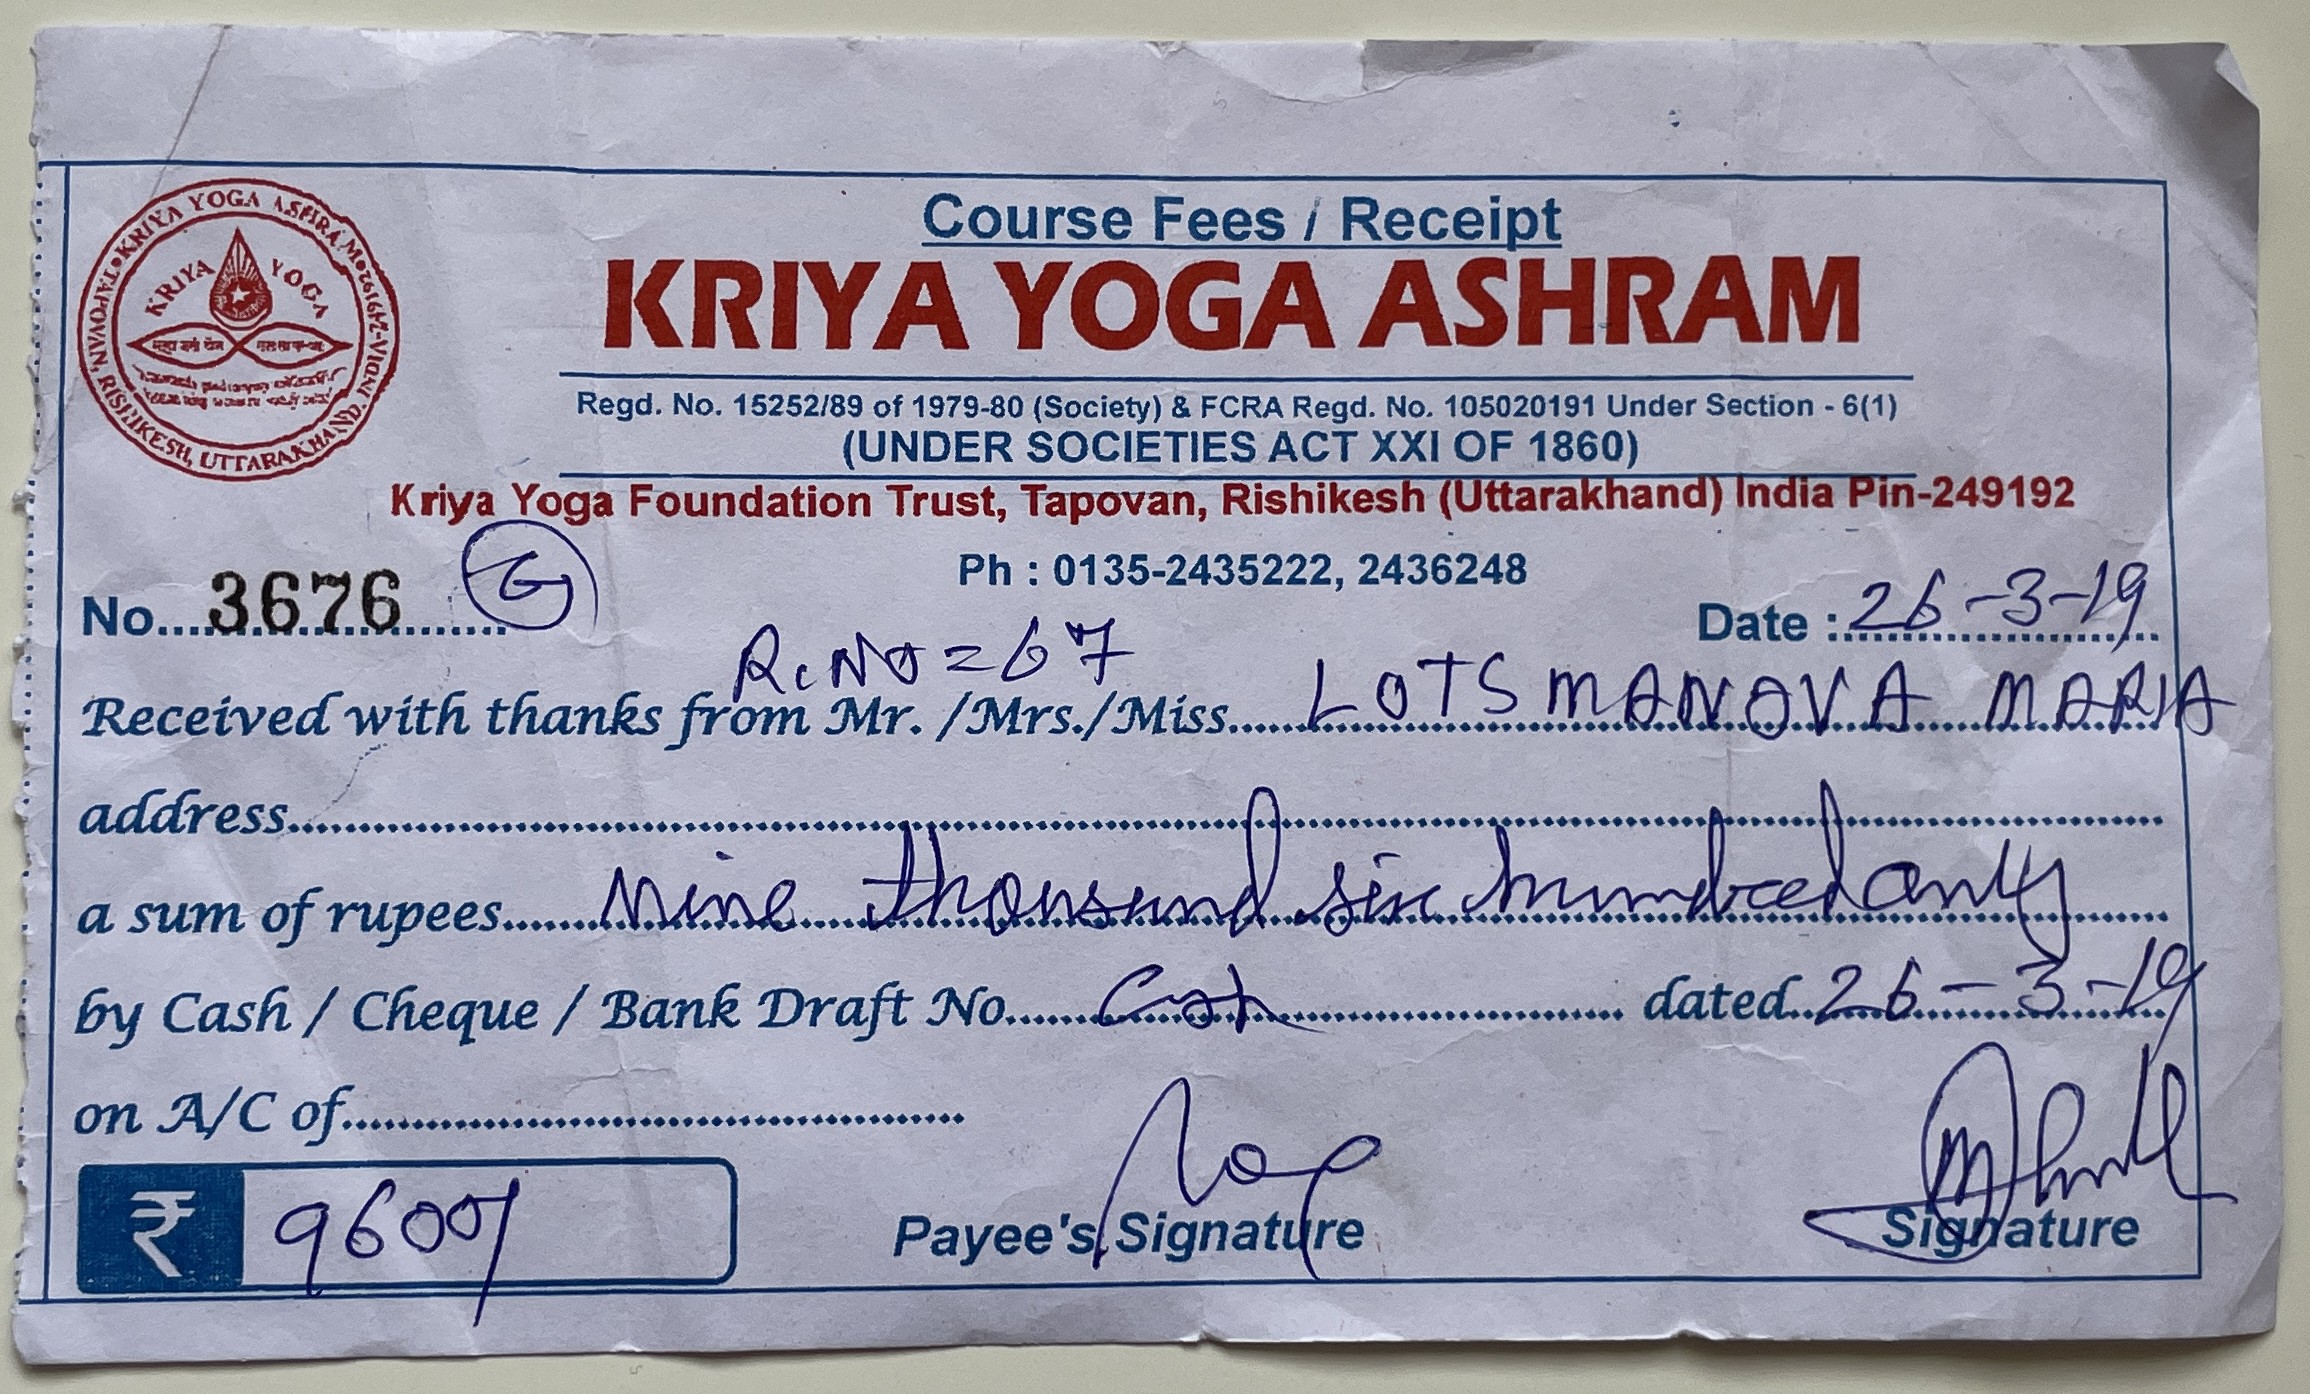 Course Fees / Receipt
KRIYA YOGA ASHRAM
KRIYA YOGA ASHRAM • 249192-INDIA • TAPOVAN, RISHIKESH, UTTARAKHAND
KRIYA YOGA
Regd. No. 15252/89 of 1979-80 (Society) & FCRA Regd. No. 105020191 Under Section - 6(1)
(UNDER SOCIETIES ACT XXI OF 1860)
Kriya Yoga Foundation Trust, Tapovan, Rishikesh (Uttarakhand) India Pin-249192
Ph : 0135-2435222, 2436248
No. 3676 G
Date : 26-3-19
R. No = 67
Received with thanks from Mr. /Mrs./Miss LOTSMANOVA MARIA
address
a sum of rupees Nine thousand six hundred only
by Cash / Cheque / Bank Draft No. Cash dated 26-3-19
on A/C of
₹ 9600/
Payee's Signature
Signature